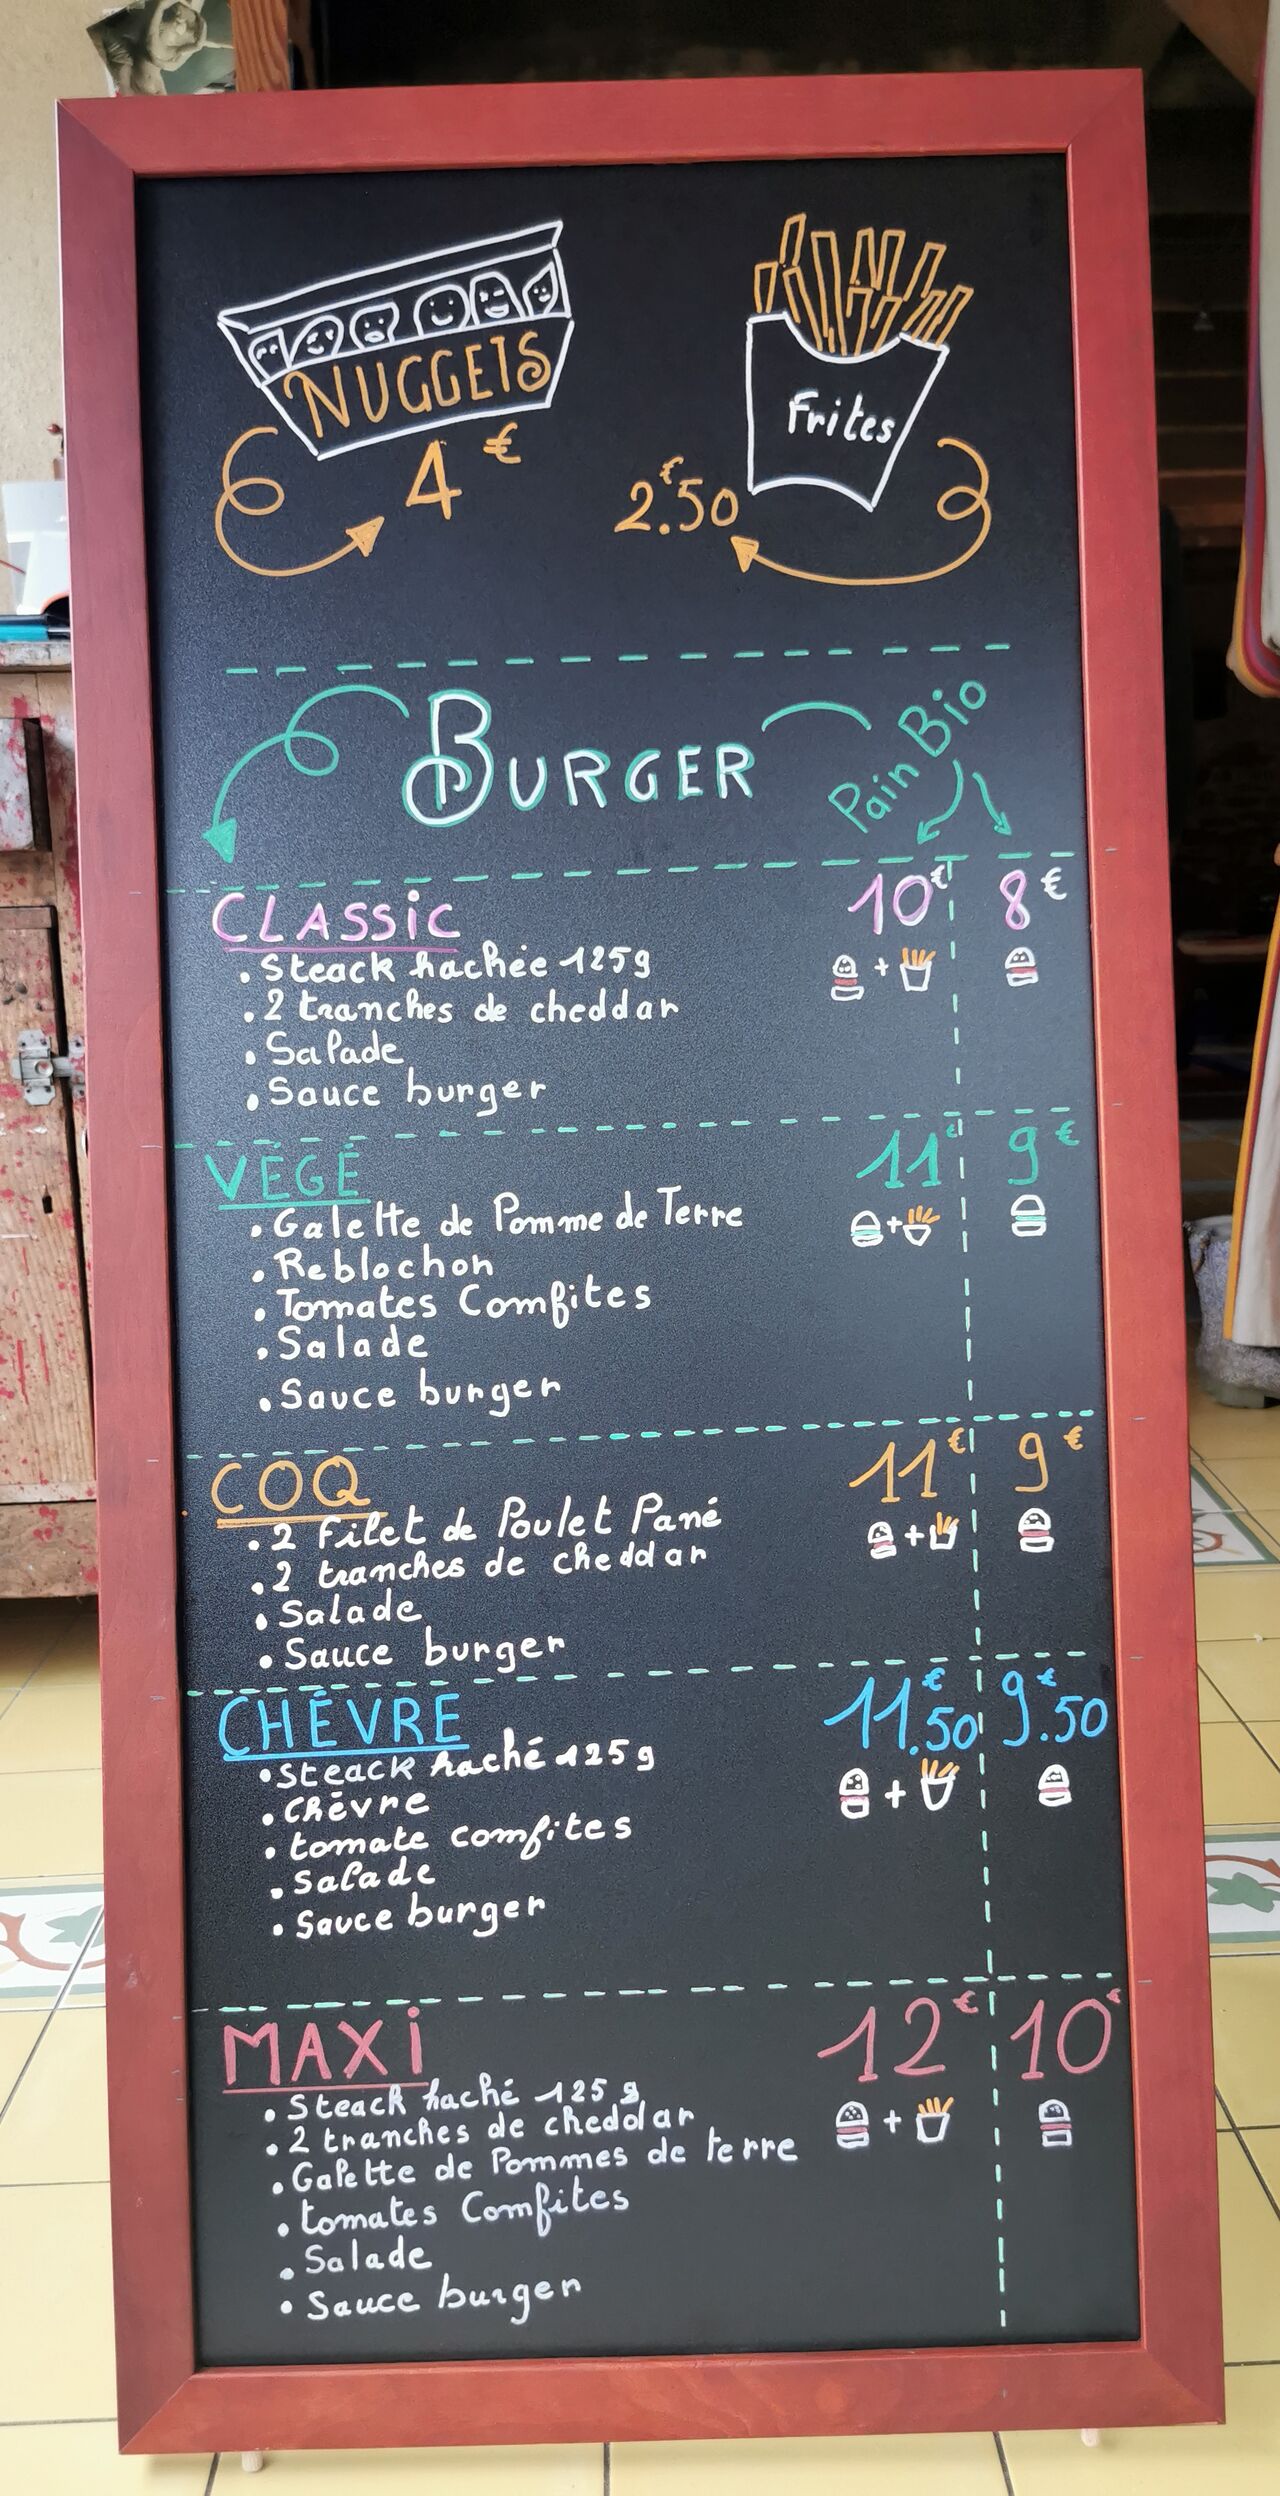 NUGGETS
4 €
Frites
2.€50
BURGER
Pain Bio
CLASSiC 10€ 8€
. Steack hachée 125g
. 2 tranches de cheddar
. Salade
. Sauce burger
VÉGÉ 11€ 9€
. Galette de Pomme de Terre
. Reblochon
. Tomates Comfites
. Salade
. Sauce burger
COQ 11€ 9€
. 2 Filet de Poulet Pané
. 2 tranches de cheddar
. Salade
. Sauce burger
CHÈVRE 11.€50 9.€50
. Steack haché 125g
. Chèvre
. tomate comfites
. Salade
. Sauce burger
MAXi 12€ 10€
. Steack haché 125g
. 2 tranches de cheddar
. Galette de Pommes de terre
. tomates Comfites
. Salade
. Sauce burger